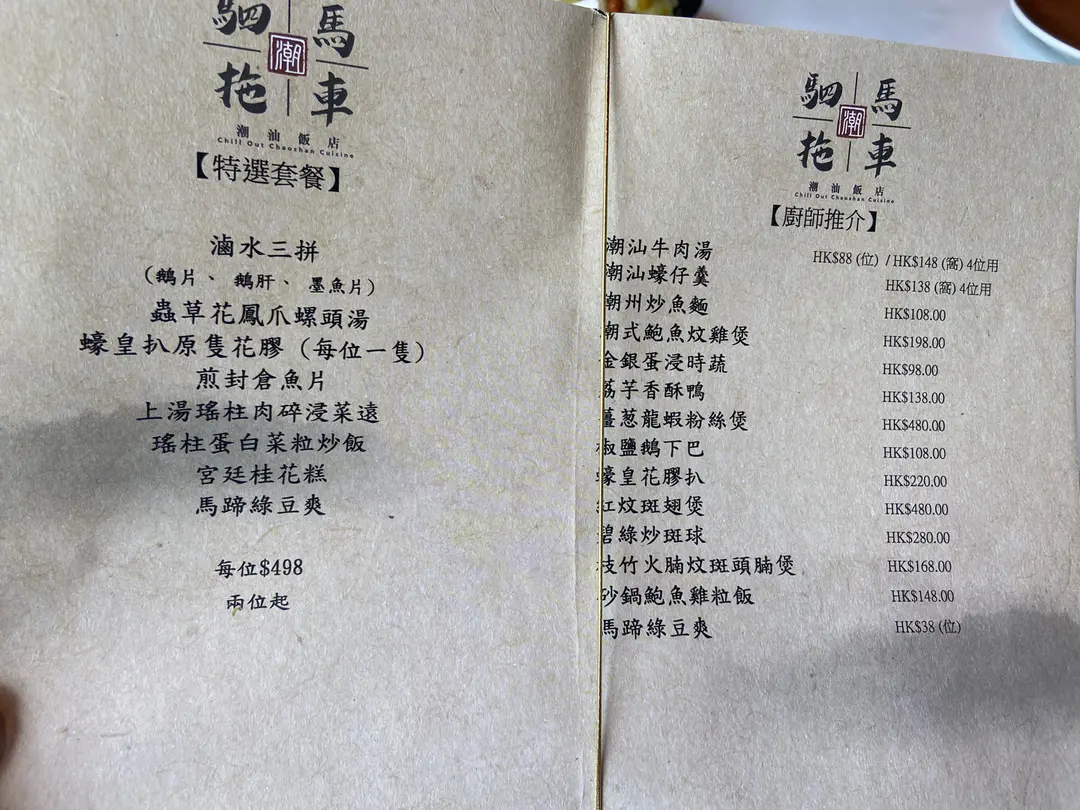 駟馬
潮
拖車
潮汕飯店
Chill Out Chaoshan Cuisine
【特選套餐】
滷水三拼
(鵝片、鵝肝、墨魚片)
蟲草花鳳爪螺頭湯
蠔皇扒原隻花膠（每位一隻）
煎封倉魚片
上湯瑤柱肉碎浸菜遠
瑤柱蛋白菜粒炒飯
宮廷桂花糕
馬蹄綠豆爽
每位$498
兩位起
駟馬
潮
拖車
潮汕飯店
Chill Out Chaoshan Cuisine
【廚師推介】
潮汕牛肉湯 HK$88 (位) / HK$148 (窩) 4位用
潮汕蠔仔羹 HK$138 (窩) 4位用
潮州炒魚麵 HK$108.00
潮式鮑魚炆雞煲 HK$198.00
金銀蛋浸時蔬 HK$98.00
荔芋香酥鴨 HK$138.00
薑葱龍蝦粉絲煲 HK$480.00
椒鹽鵝下巴 HK$108.00
蠔皇花膠扒 HK$220.00
紅炆斑翅煲 HK$480.00
碧綠炒斑球 HK$280.00
枝竹火腩炆斑頭腩煲 HK$168.00
砂鍋鮑魚雞粒飯 HK$148.00
馬蹄綠豆爽 HK$38 (位)